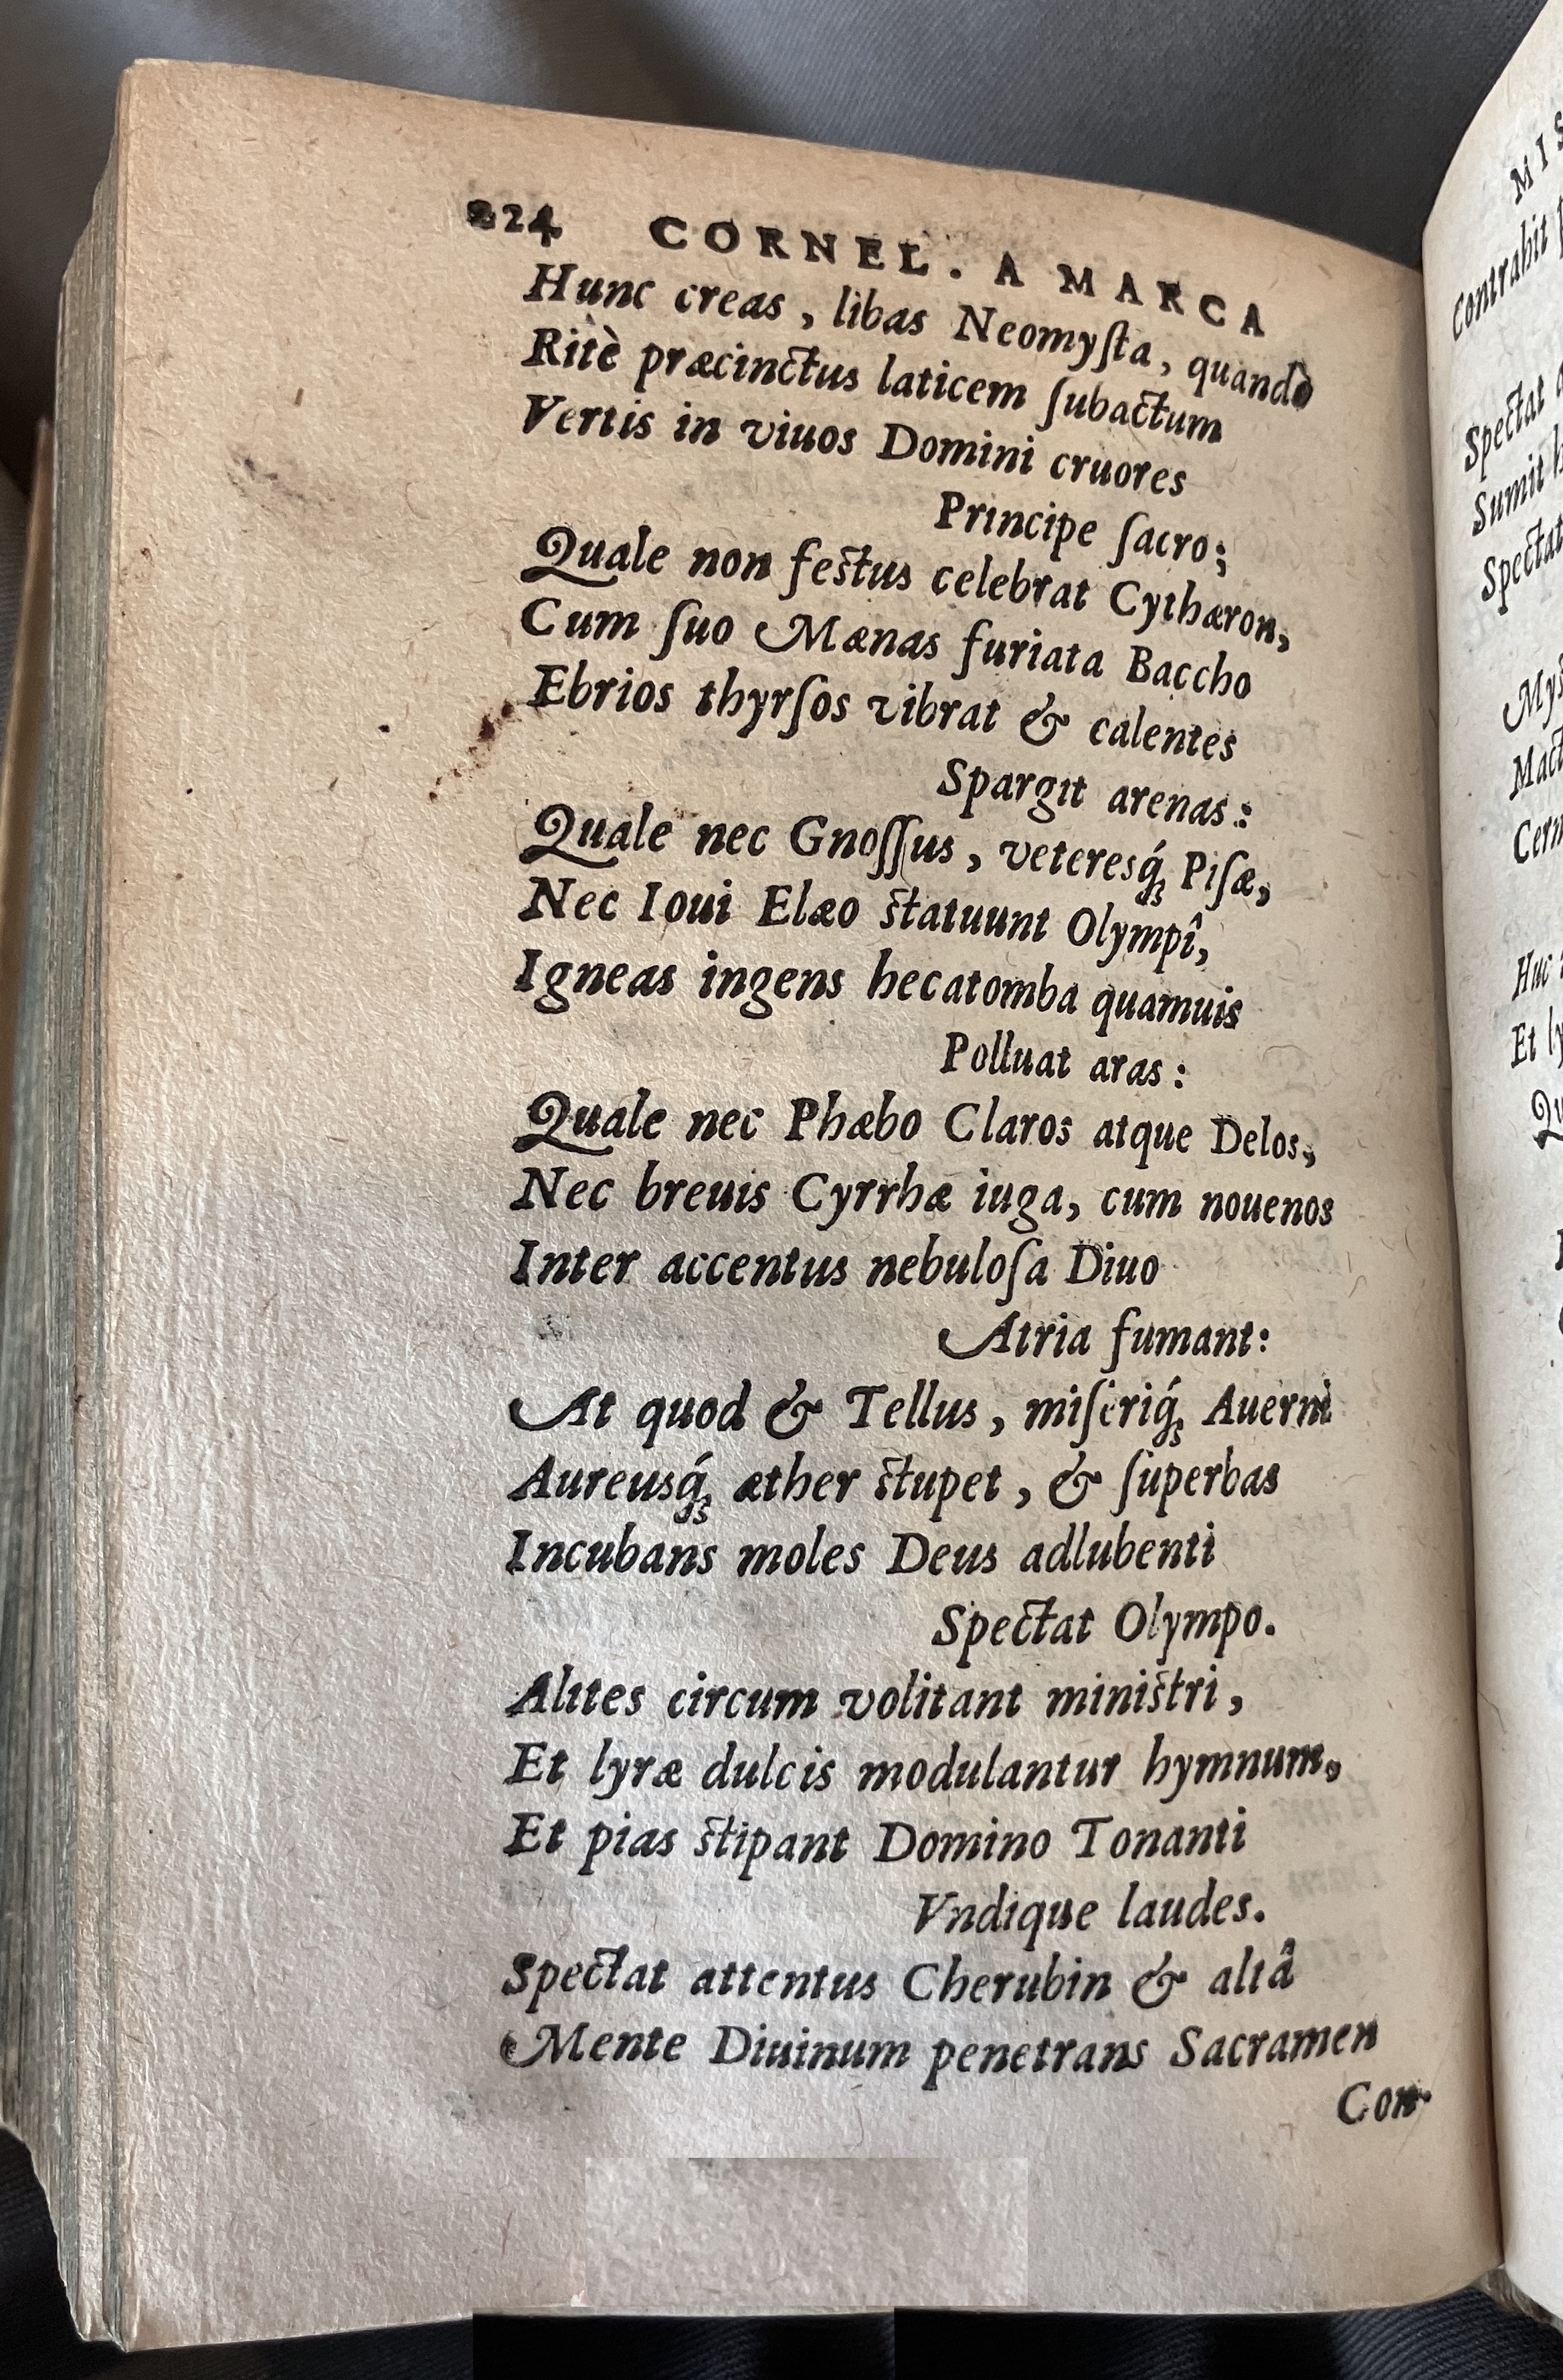 224 CORNEL. A MARCA
Hunc creas, libas Neomyſta, quandò
Ritè præcinctus laticem ſubactum
Vertis in viuos Domini cruores
Principe ſacro;
Quale non feſtus celebrat Cythæron,
Cum ſuo Mænas furiata Baccho
Ebrios thyrſos vibrat & calentes
Spargit arenas:
Quale nec Gnoſſus, veteresq́; Piſæ,
Nec Ioui Elæo ſtatuunt Olympî,
Igneas ingens hecatomba quamuis
Polluat aras:
Quale nec Phæbo Claros atque Delos,
Nec breuis Cyrrhæ iuga, cum nouenos
Inter accentus nebuloſa Diuo
Atria fumant:
At quod & Tellus, miſeriq́; Auerni
Aureusq́; æther ſtupet, & ſuperbas
Incubans moles Deus adlubenti
Spectat Olympo.
Alites circum volitant miniſtri,
Et lyræ dulcis modulantur hymnum,
Et pias ſtipant Domino Tonanti
Vndique laudes.
Spectat attentus Cherubin & altâ
Mente Diuinum penetrans Sacramen
Con-
MIS
Contrahit
Spectat
Sumit
Spectat
Huc
Et